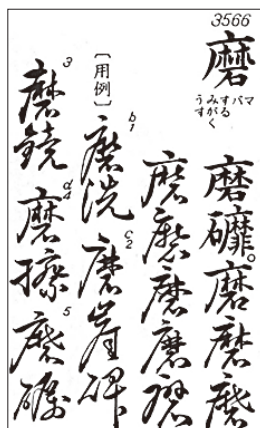 3566
磨
マ バ
する
みがく
うす
磨䃺。磨磨磨
磨磨磨磨磨
〔用例〕
b1 磨洗
c2 磨崖碑
3 磨鏡
d4 磨擦
5 磨礪